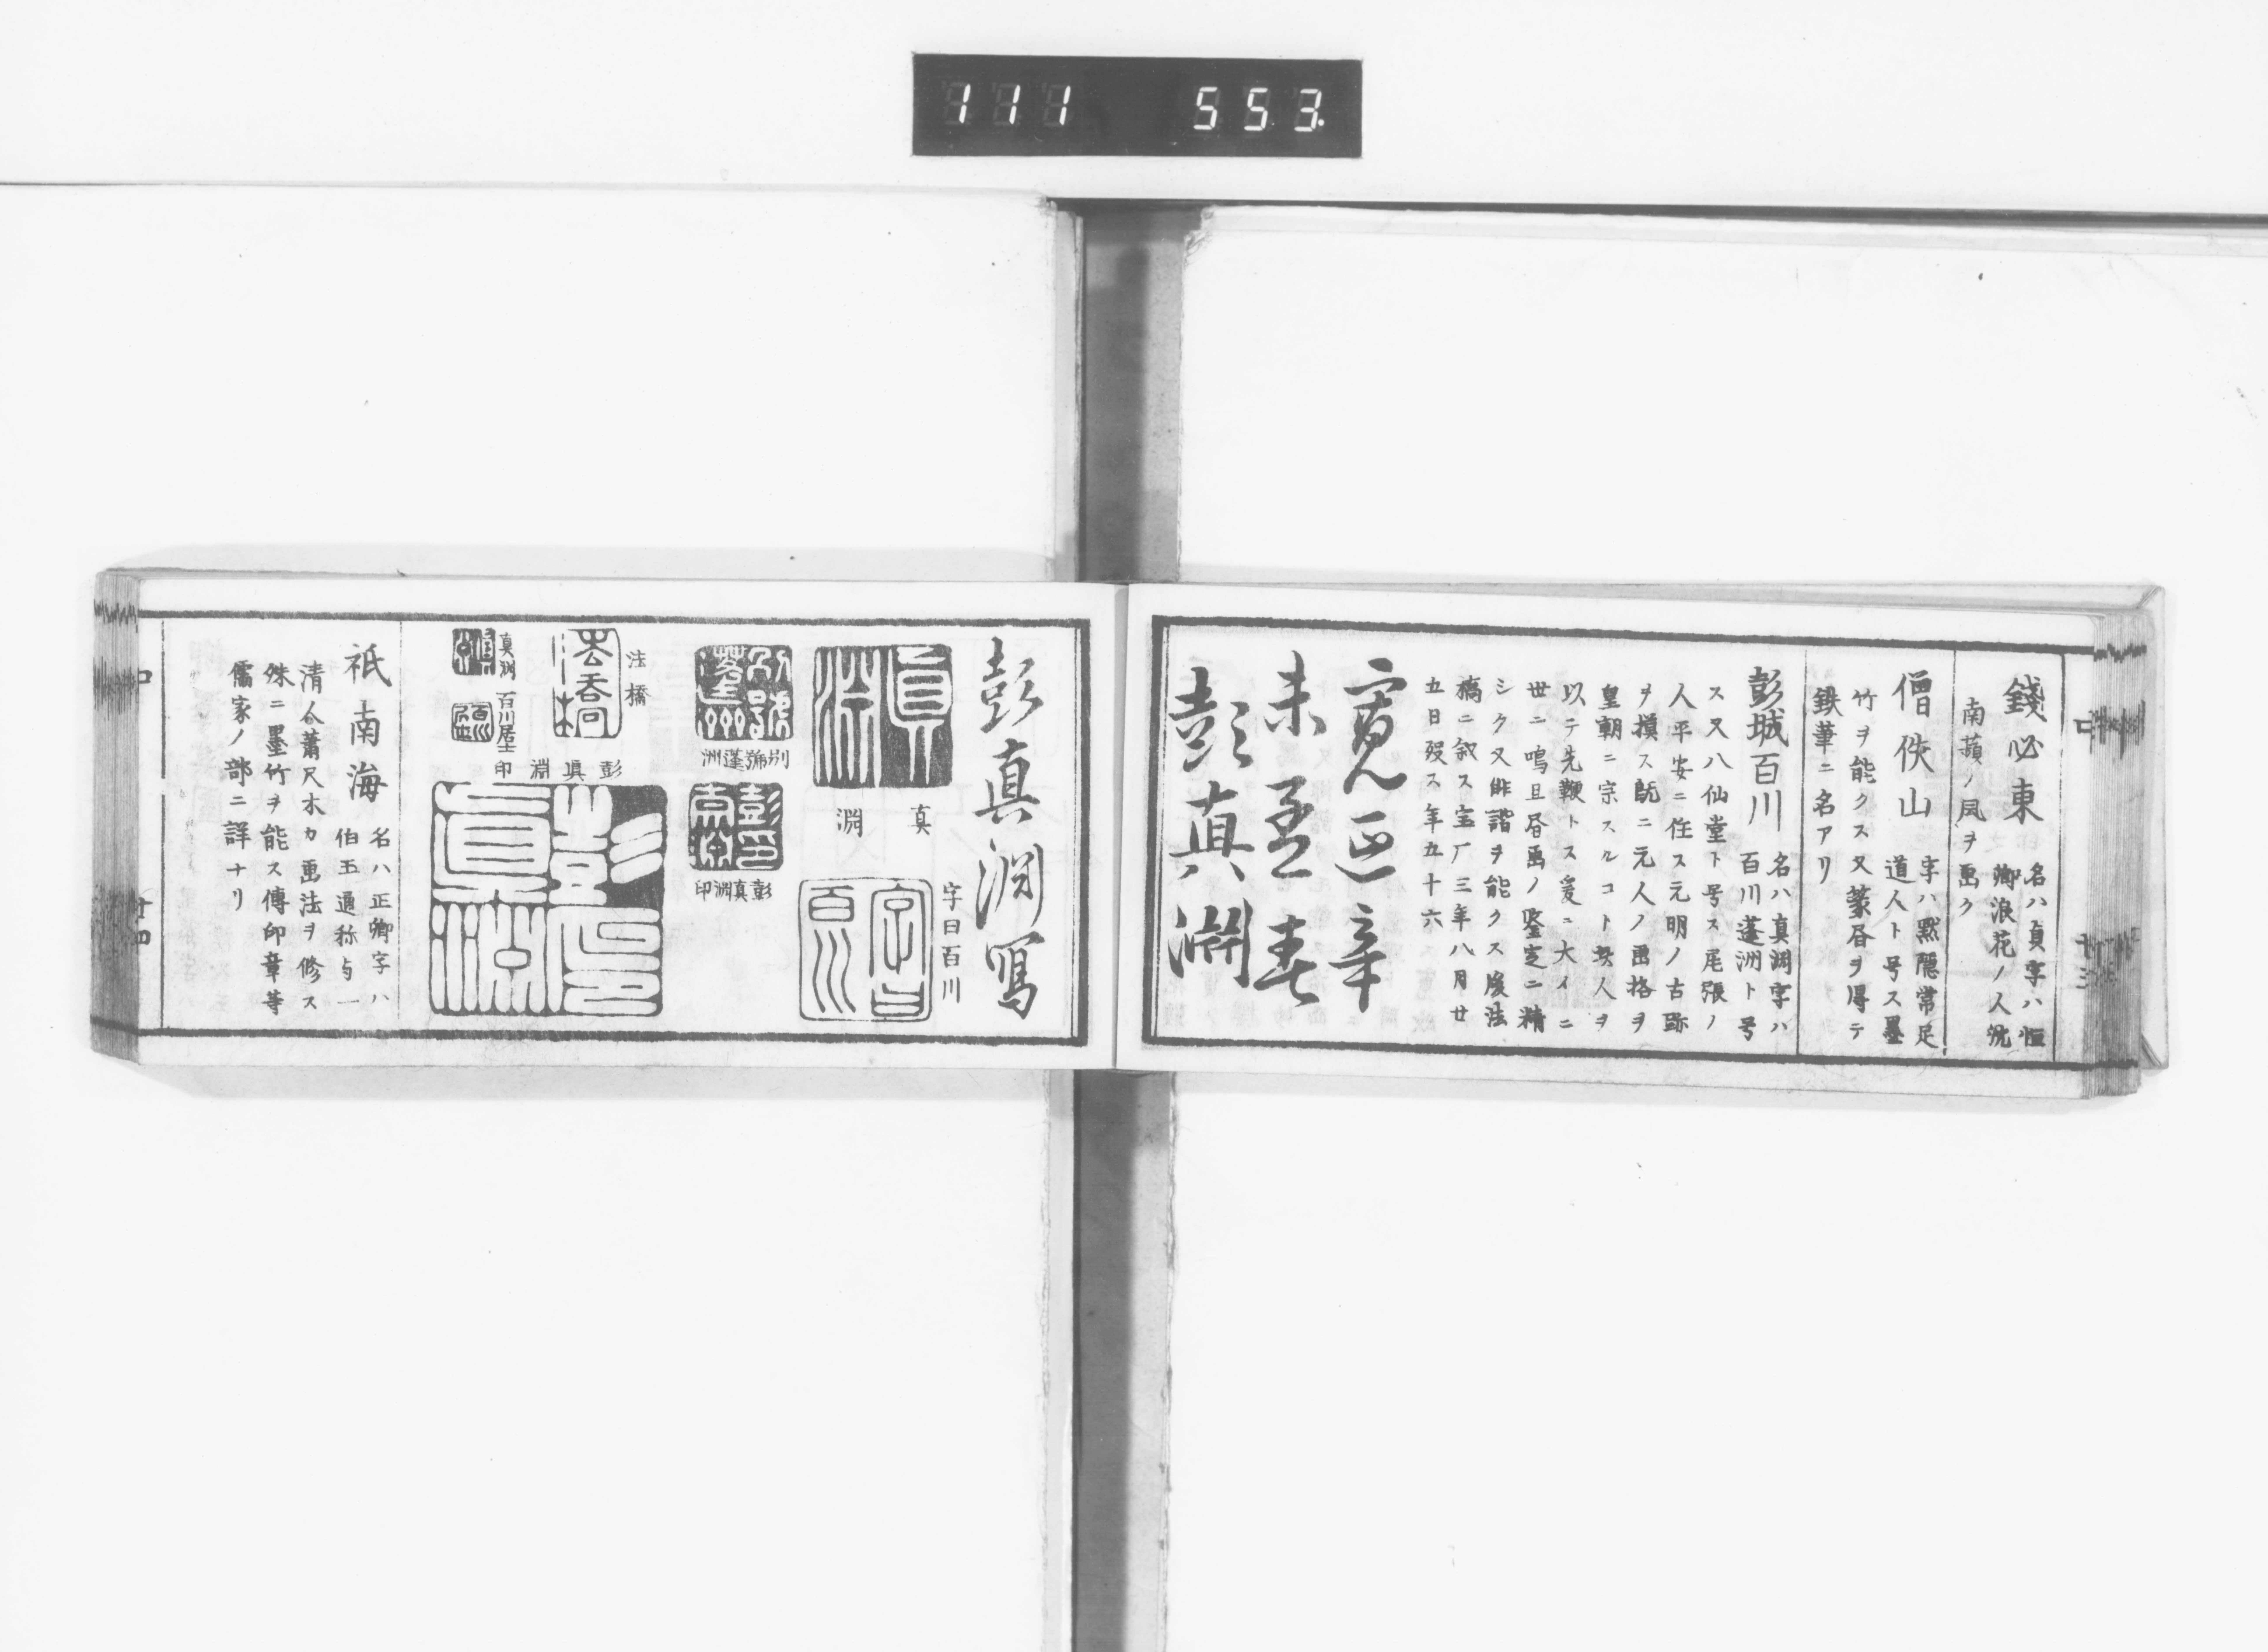 111 553.
錢必東
名ハ貞字ハ恒
卿浪花ノ人沈
南蘋ノ風ヲ画ク
僧佚山
字ハ黙隠常足
道人ト号ス墨
竹ヲ能クス又篆昏ヲ得テ
鉄筆ニ名アリ
彭城百川
名ハ真渕字ハ
百川蓬洲ト号
ス又八仙堂ト号ス尾張ノ
人平安ニ住ス元明ノ古跡
ヲ摸ス既ニ元人ノ画格ヲ
皇朝ニ宗スルコト我人ヲ
以テ先鞭トス爰ニ大イニ
世ニ鳴且昏画ノ鑒定ニ精
シク又俳諧ヲ能クス後法
橋ニ叙ス宝厂三年八月廿
五日歿ス年五十六
寛延辛
未孟春
彭真淵
十三
彭真渕寫
真淵
字曰百川
別号蓬洲
彭真渕印
法橋
真渕
百川居士
彭真淵印
祇南海
名ハ正卿字ハ
伯玉通称与一
清人蕭尺木カ画法ヲ修ス
殊ニ墨竹ヲ能ス傳印章等
儒家ノ部ニ詳ナリ
十四